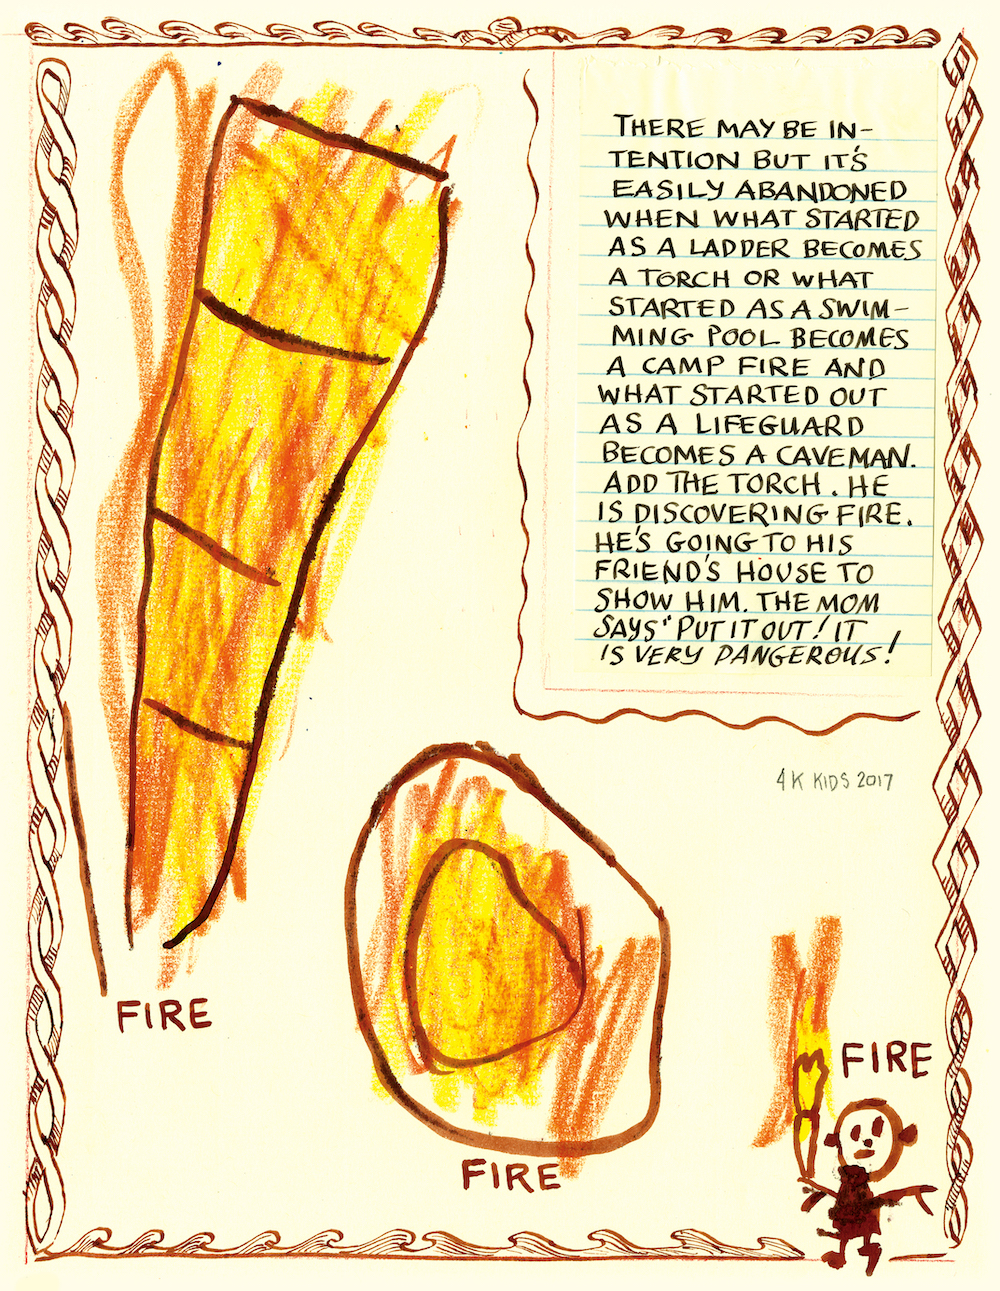 THERE MAY BE IN-
TENTION BUT IT'S
EASILY ABANDONED
WHEN WHAT STARTED
AS A LADDER BECOMES
A TORCH OR WHAT
STARTED AS A SWIM-
MING POOL BECOMES
A CAMP FIRE AND
WHAT STARTED OUT
AS A LIFEGUARD
BECOMES A CAVEMAN.
ADD THE TORCH. HE
IS DISCOVERING FIRE.
HE'S GOING TO HIS
FRIEND'S HOUSE TO
SHOW HIM. THE MOM
SAYS "PUT IT OUT! IT
IS VERY DANGEROUS!
4K KIDS 2017
FIRE
FIRE
FIRE